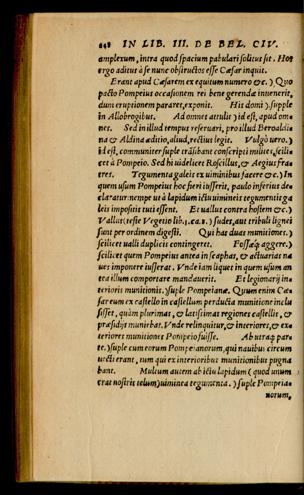 248 IN LIB. III. DE BEL. CIV.
amplexum, intra quod spacium pabulari solitus sit. Hos
ergo aditus à se nunc obstructos esse Cæsar inquit.
Erant apud Cæsarem ex equitum numero &c.) Quo
pacto Pompeius occasionem rei bene gerendæ inuenerit,
dum eruptionem pararet, exponit. Hi domi) supple
in Allobrogibus. Ad omnes attulit) id est, apud om=
nes. Sed in illud tempus reseruari, pro illud Beroaldi=
na & Aldina æditio, aliud, rectius legit. Vulgò vero.)
id est, communiter suple trāsibant conscripti milites, scili=
cet à Pompeio. Sed hi uidelicet Roscillus, & Aegius fra=
tres. Tegumenta galeis ex uiminibus facere &c.) In
quem usum Pompeius hoc fieri iusserit, paulo inferius de=
claratur: nempe ut à lapidum ictu uimineis tegumentis ga
leis impositis tuti essent. Et uallus contra hostem &c.)
Vallus (teste Vegetio lib. 1. ca. 8.) sudes, aut tribuli lignei
sunt per ordinem digesti. Qui has duas munitiones.)
scilicet ualli duplicis contingeret. Fossæq; aggere.)
scilicet quem Pompeius antea in scaphas, & actuarias na
ues imponere iusserat. Vnde iam liquet in quem usum an
tea illum comportare mandauerit. Et legionarij in=
terioris munitionis.) suple Pompeianæ. Quum enim Cæ=
sar eum ex castello in castellum perducta munitione inclu
sisset, quàm plurimas, & latissimas regiones castellis, &
præsidijs muniebat. Vnde relinquitur, & interiores, & ex
teriores munitiones Pompeio fuisse. Ab utraq; par=
te.) suple cum eorum Pompeianorum, qui nauibus circum
uecti erant, tum qui ex interioribus munitionibus pugna
bant. Multum autem ab ictu lapidum (quod unum
erat nostris telum) uiminea tegumenta.) suple Pompeia=
norum,